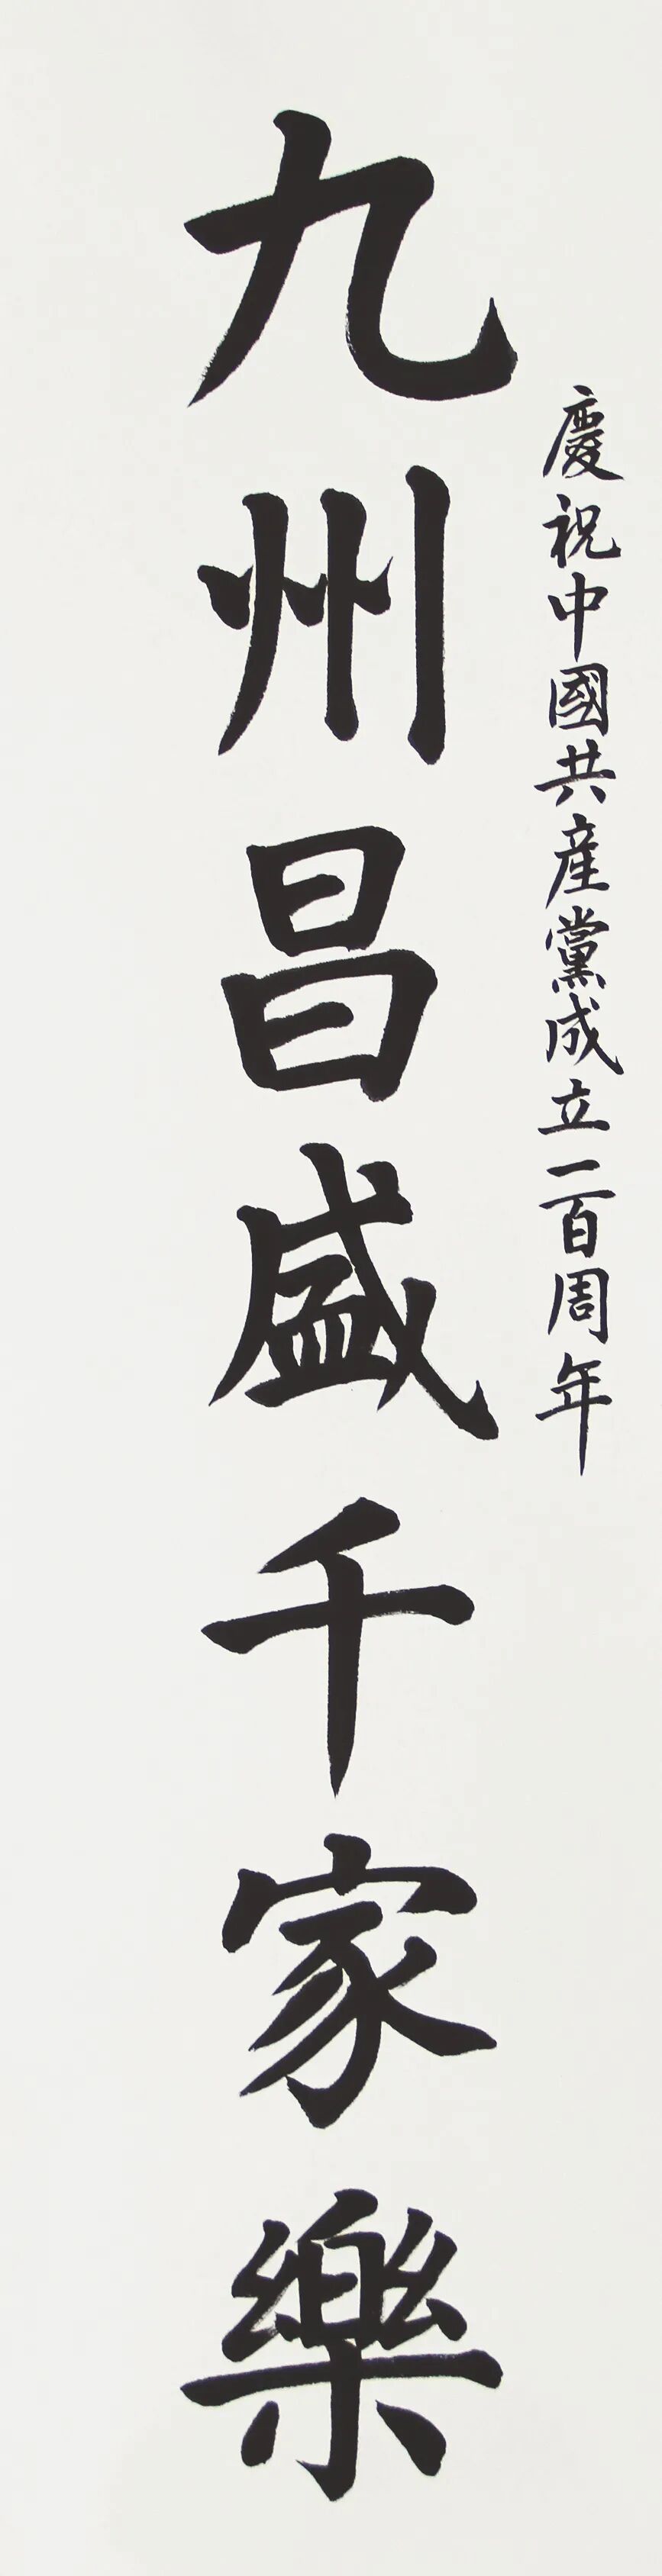 慶祝中國共產黨成立一百周年
九州昌盛千家樂